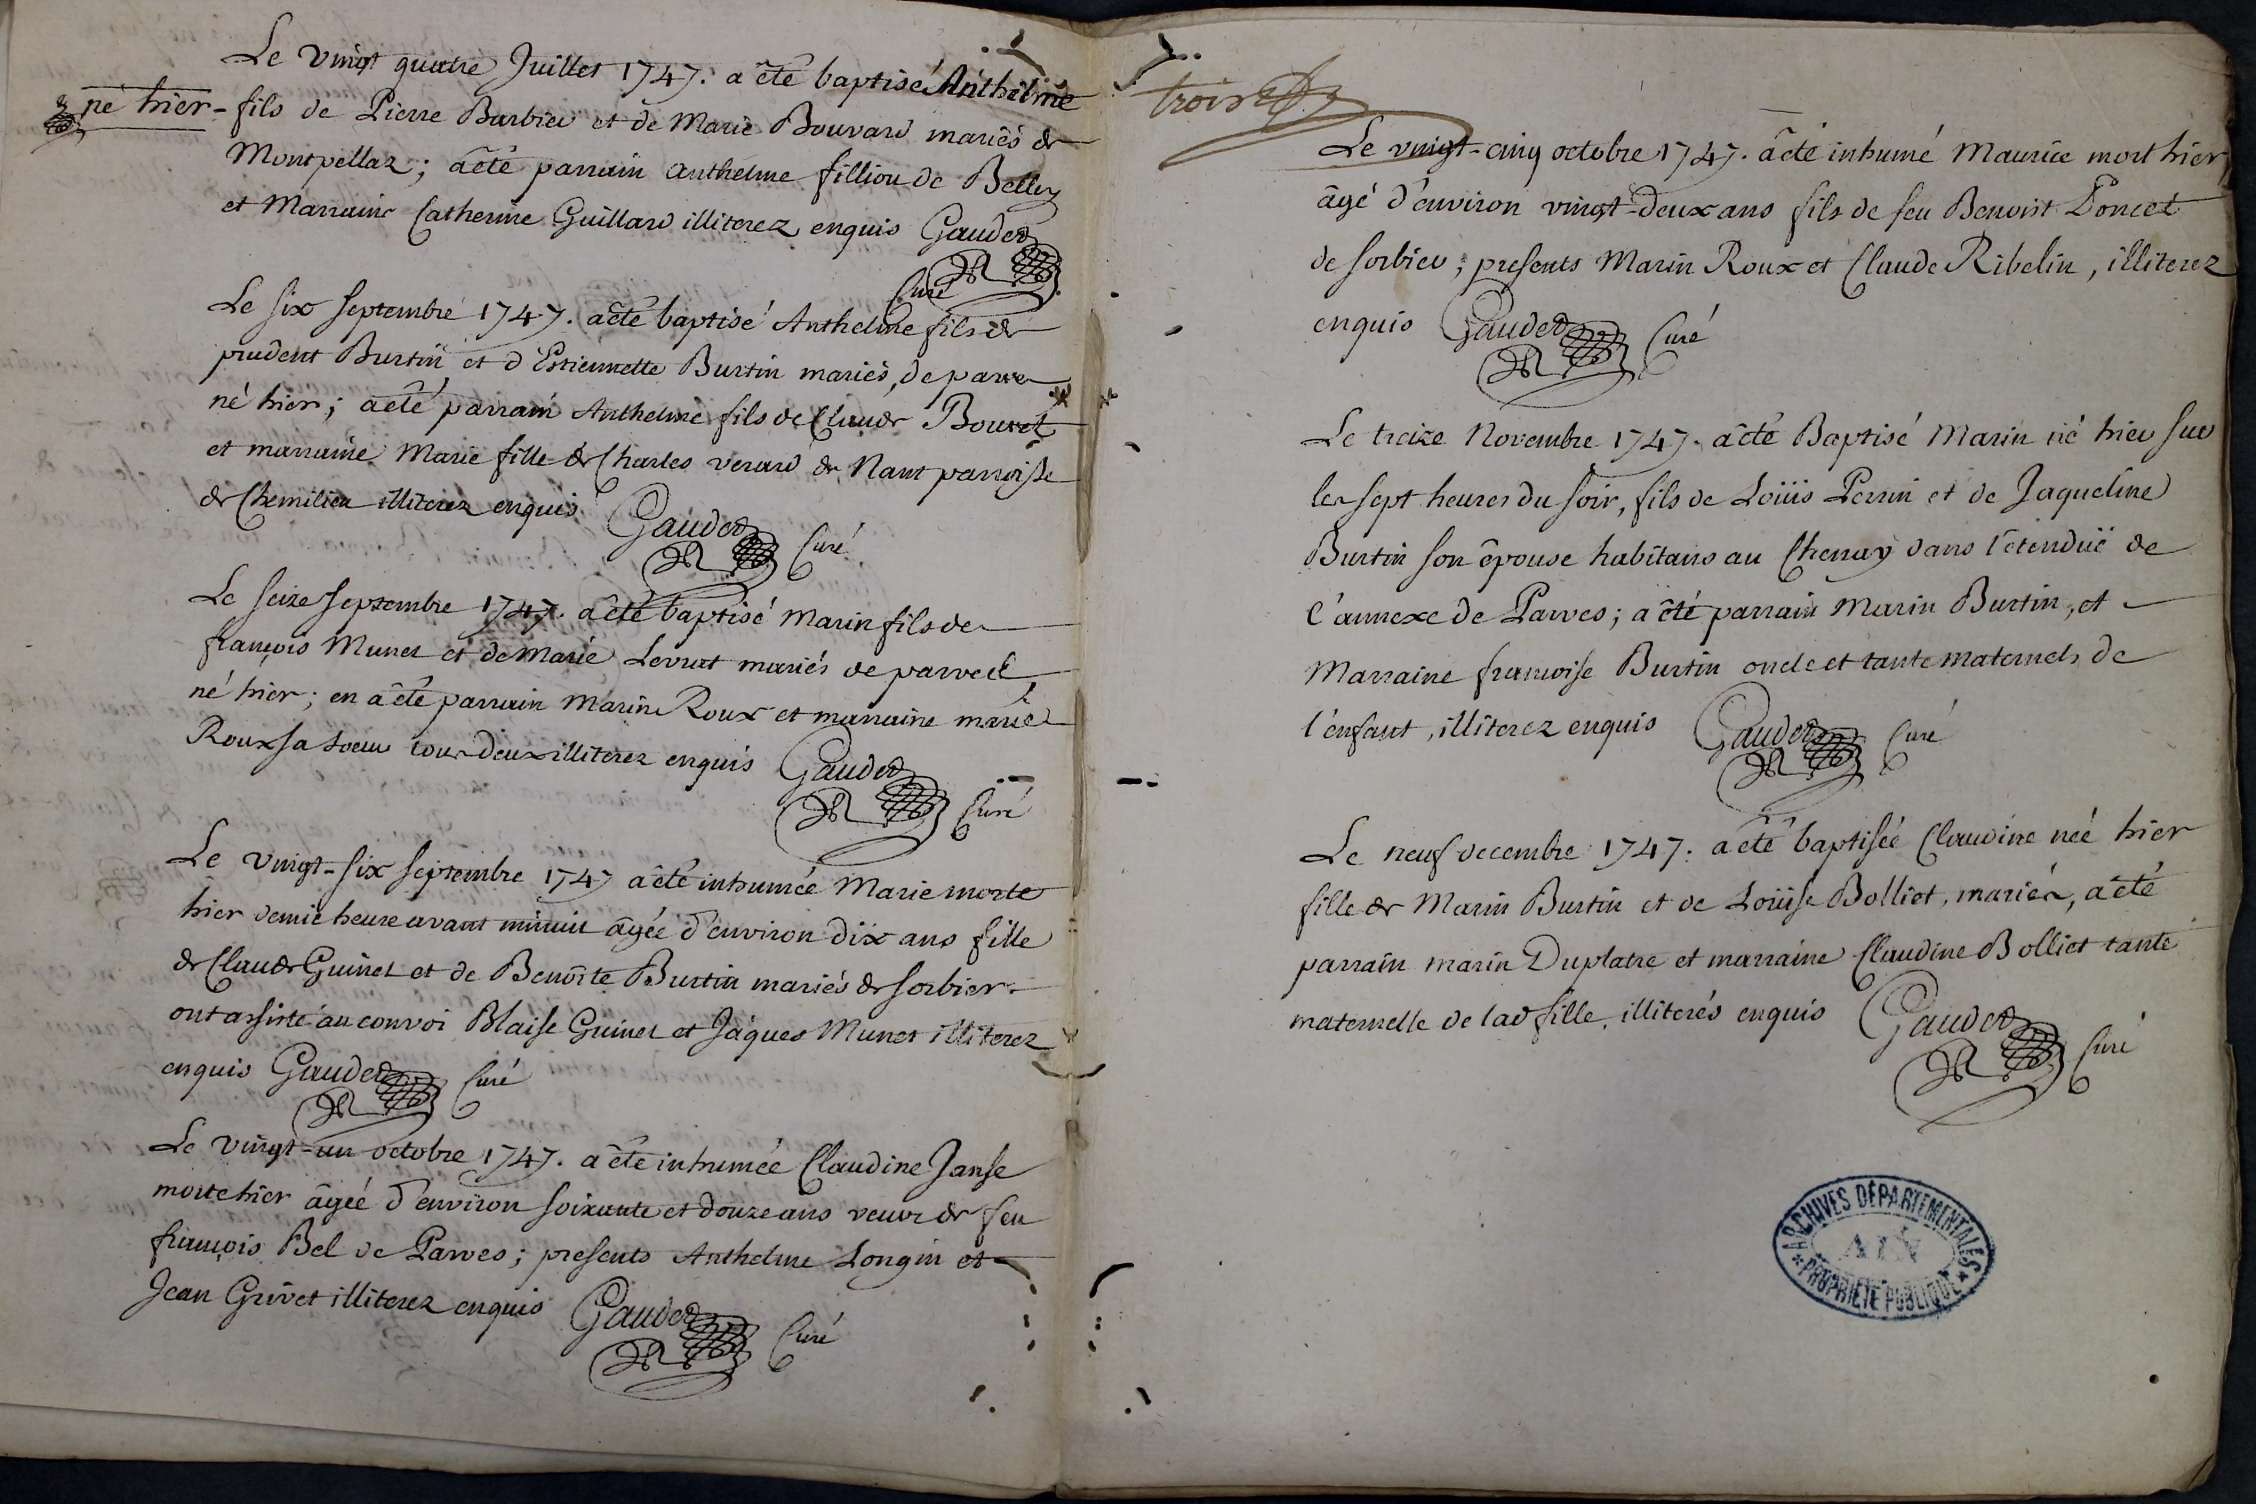 Le vingt quatre Juillet 1747. a êté baptisé Anthelme
né hier - fils de Pierre Barbier et de Marie Bouvard mariés de
Montpellaz; a êté parrain Anthelme fillion de Belley
et Marraine Catherine Guillard illiterez enquis Gaudet
Curé
Le six septembre 1747. a êté baptisé Anthelme fils de
prudent Burtin et d'Estiennette Burtin mariés, de parve
né hier; a êté parrain Anthelme fils de Claude Bouvet
et marraine Marie fille de Charles verard de Nant parroisse
de Chemilieu illiterez enquis Gaudet Curé
Le seize septembre 1747. a êté baptisé Marin fils de
françois Munet et de Marie Levrat mariés de parve
né hier; en a êté parrain Marin Roux et marraine marie
Roux sa soeur tous deux illiterez enquis Gaudet
Curé
Le vingt-six septembre 1747 a êté inhumée Marie morte
hier demie heure avant minuit âgée d'environ dix ans fille
de Claude Guinet et de Benoîte Burtin mariés de sorbier.
ont assisté au convoi Blaise Guinet et Jâques Munet illiterez
enquis Gaudet Curé
Le vingt-un octobre 1747. a êté inhumée Claudine Janse
morte hier âgée d'environ soixante et douze ans veuve de feu
françois Bel de Parves; presents Anthelme Longin et
Jean Grivet illiterez enquis Gaudet Curé
trois
Le vingt-cinq octobre 1747. a êté inhumé Maurice mort hier,
âgé d'environ vingt-deux ans fils de feu Benoist Poncet
de sorbier; presents Marin Roux et Claude Ribelin, illiterez
enquis Gaudet Curé
Le treize Novembre 1747. a êté Baptisé Marin né hier sur
les sept heures du soir, fils de Loüis Perrin et de Jaqueline
Burtin son êpouse habitans au Chenay dans l'êtenduë de
l'annexe de Parves; a êté parrain Marin Burtin, et
Marraine françoise Burtin oncle et tante maternels de
l'enfant, illiterez enquis Gaudet Curé
Le neuf decembre 1747. a êté baptisée Claudine née hier
fille de Marin Burtin et de Loüise Bolliet, mariés, a êté
parrain marin Duplatre et marraine Claudine Bolliet tante
maternelle de lad fille, illiterés enquis Gaudet
Curé
ARCHIVES DÉPARTEMENTALES
AIN
PROPRIÉTÉ PUBLIQUE